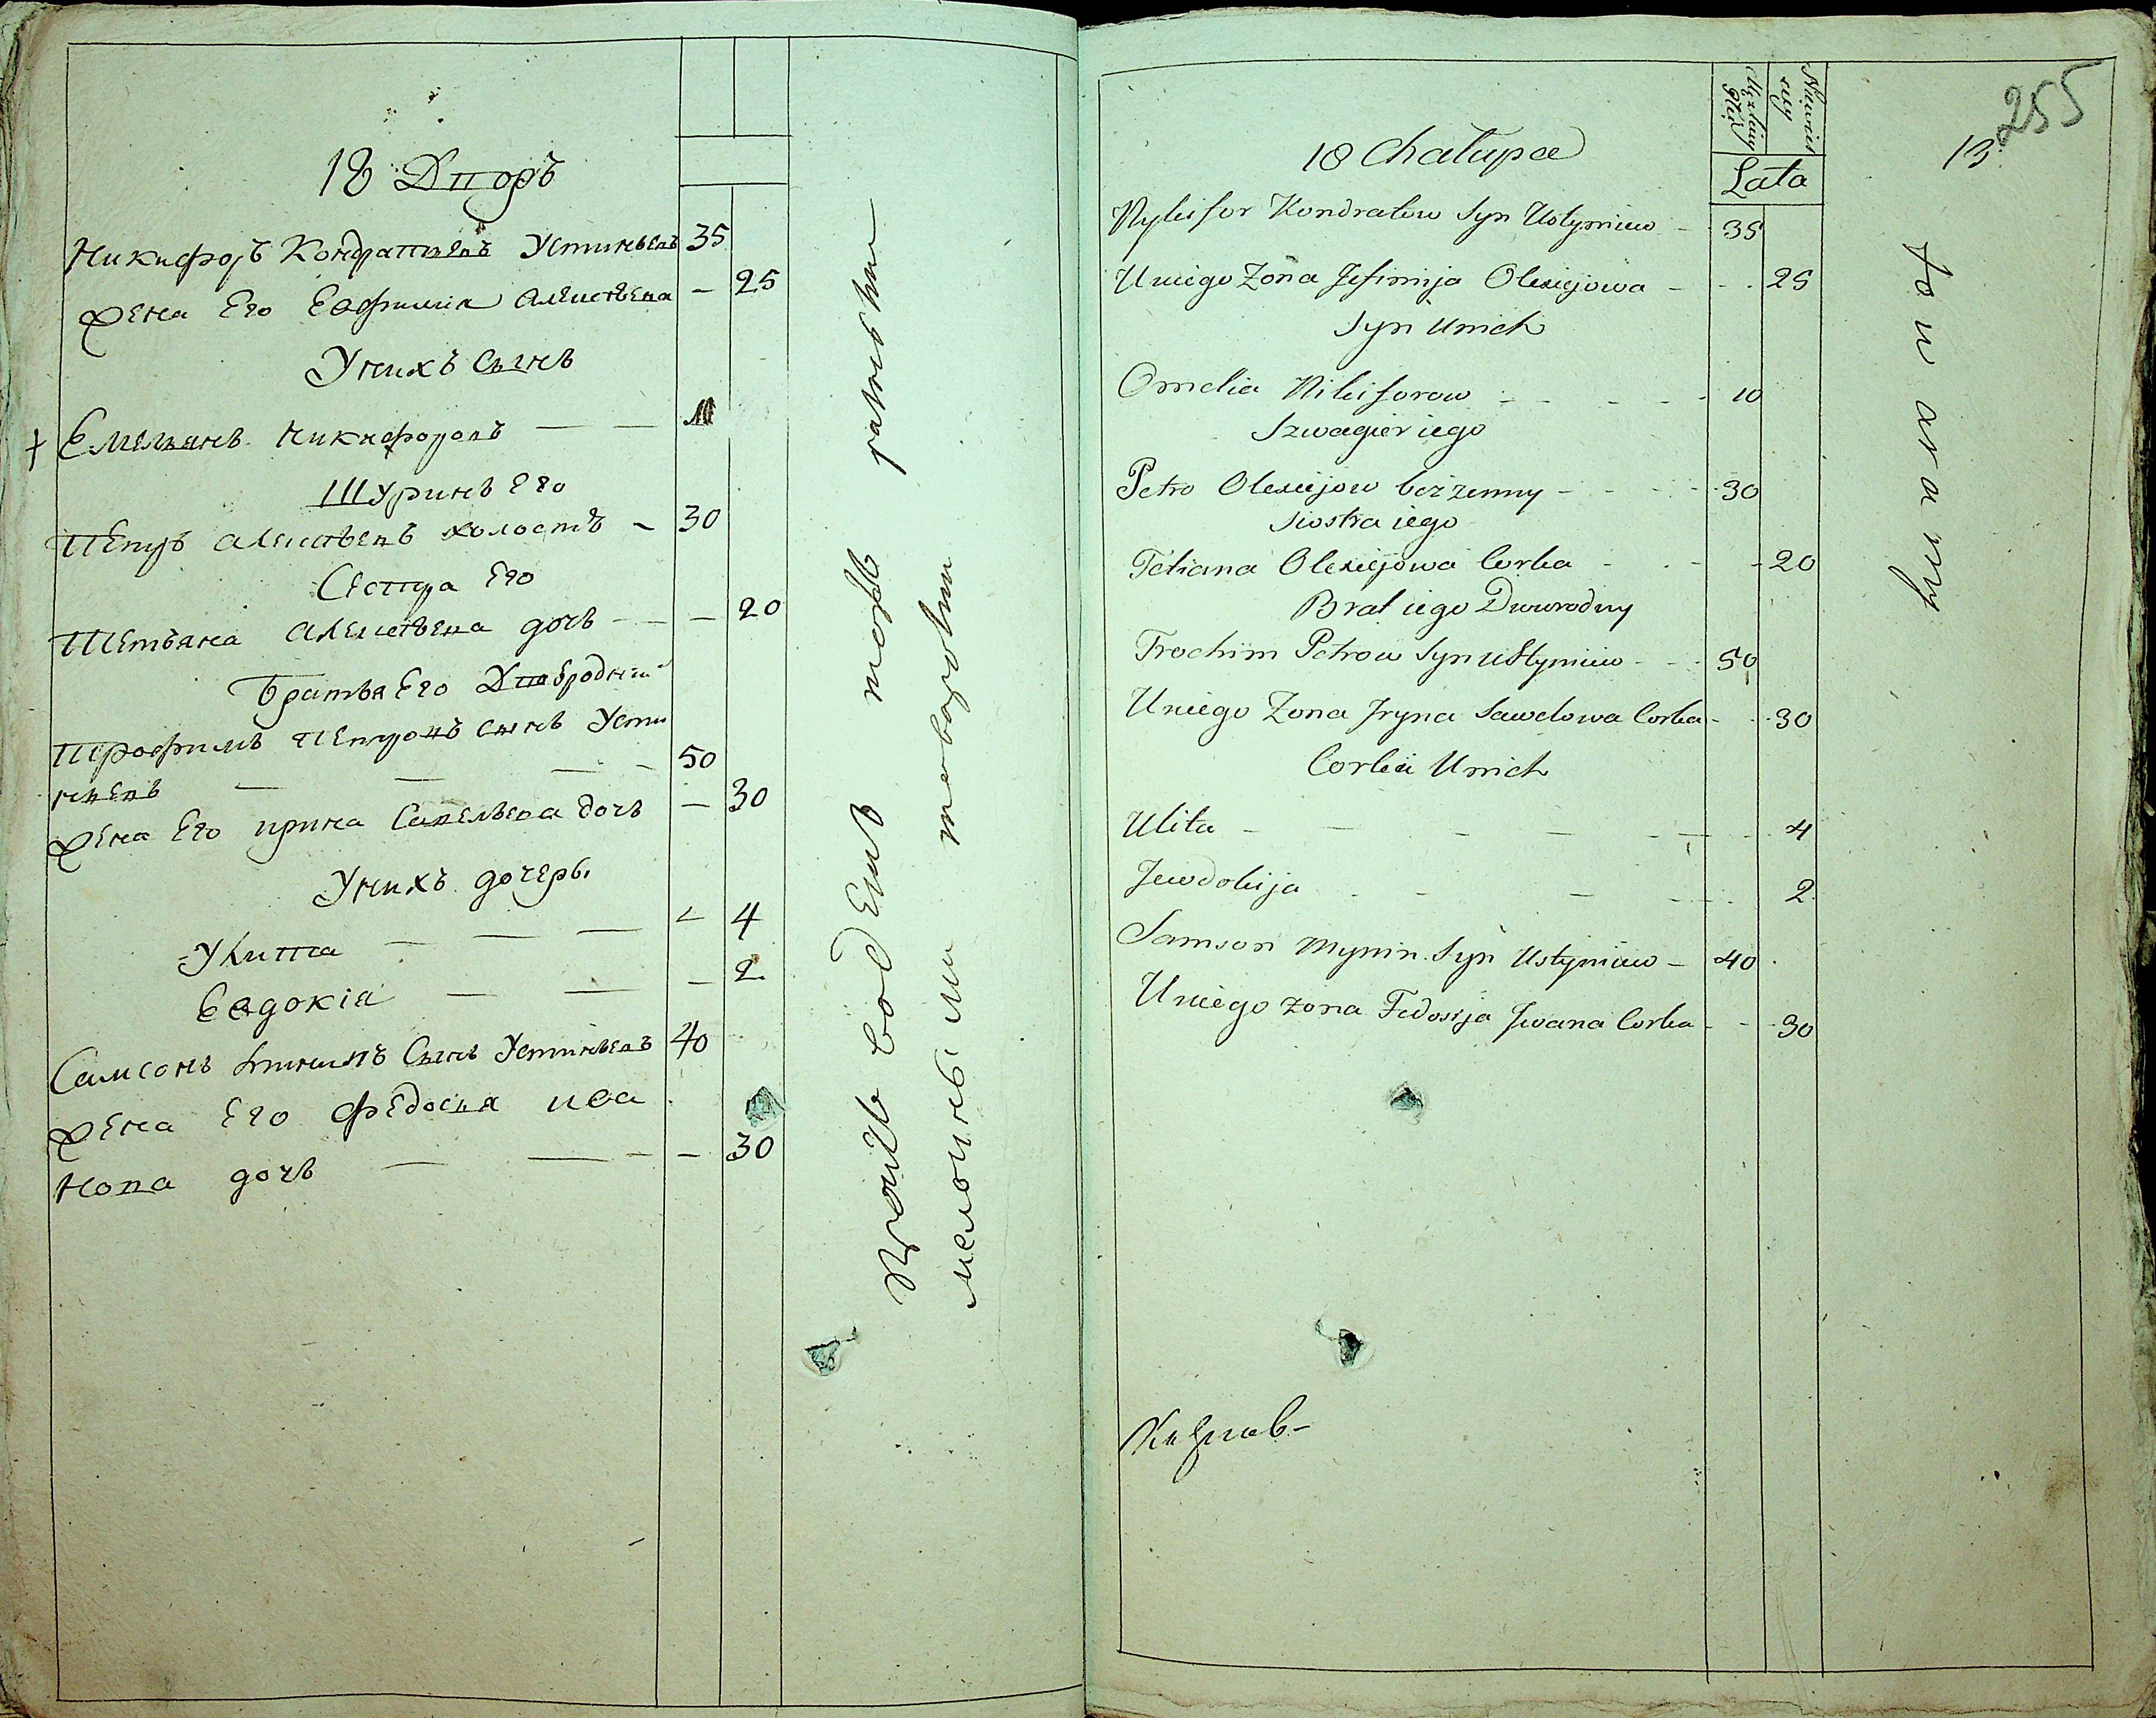 18 Дворъ
Никифоръ Кондратьевъ Устиньевъ 35
Жена Его Евфимия Алексѣева - 25
У нихъ Сынъ
+ Емельянъ Никифоровъ — —
Шуринъ Его
Петръ Алексѣевъ холостъ - 30
Сестра Его
Тетьяна Алексѣева дочь - - - 20
Братья Его Двавродные
Трофимъ Петровъ Сынъ Усти
ньевъ — — — - 50
Жена Его Ирина Савельева дочь - 30
У нихъ дочеры
Улита — — — - 4
Евдокія — — - 2
Самсонъ Сынъ Устиньевъ 40
Жена Его Федосья Ива
нова дочь — — - - 30
тожъ
255
13
Męzkiey Płci
Niewies ciey
Lata
18 Chałupa
Nykifor Kondratow Syn Ustymiuw - 35
U niego Zona Jefimija Olexiejowa - - - 25
Syn U nich
Omelia Nikiforow - - - - - 10
Szwagier iego
Petro Olexiejow bezzenny - - - - 30
Siostra iego
Tetiana Olexiejowa Corka - - - - 20
Brat iego Dwurodny
Trochim Petrow Syn Ustymiuw - - - 50
U niego Zona Jryna Sawelowa Corka - - - 30
Corki U nich
Ulita - — - — - — - - 4
Jewdokija - - — - - - 2
Samson Mynin Syn Ustymiuw - 40
U niego zona Fedosija Jwana Corka - - - 30